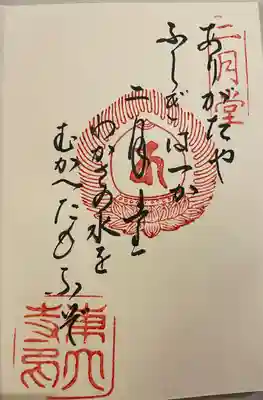 二月堂
ありがたや
ふしぎは一か
二月堂
わかさの水を
むかへたもふぞ
東大
寺印